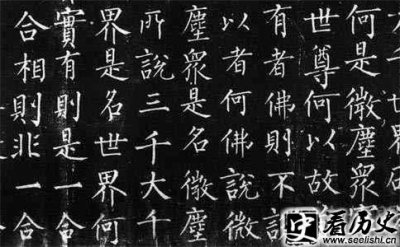 千世界
何是微塵眾
世尊何以故
有者佛則不
以者何佛說微
塵眾是名微塵
所說三千大千
界是名世界何
實有則是一合
合相則非一合
史 看历史
www.seelishi.cn